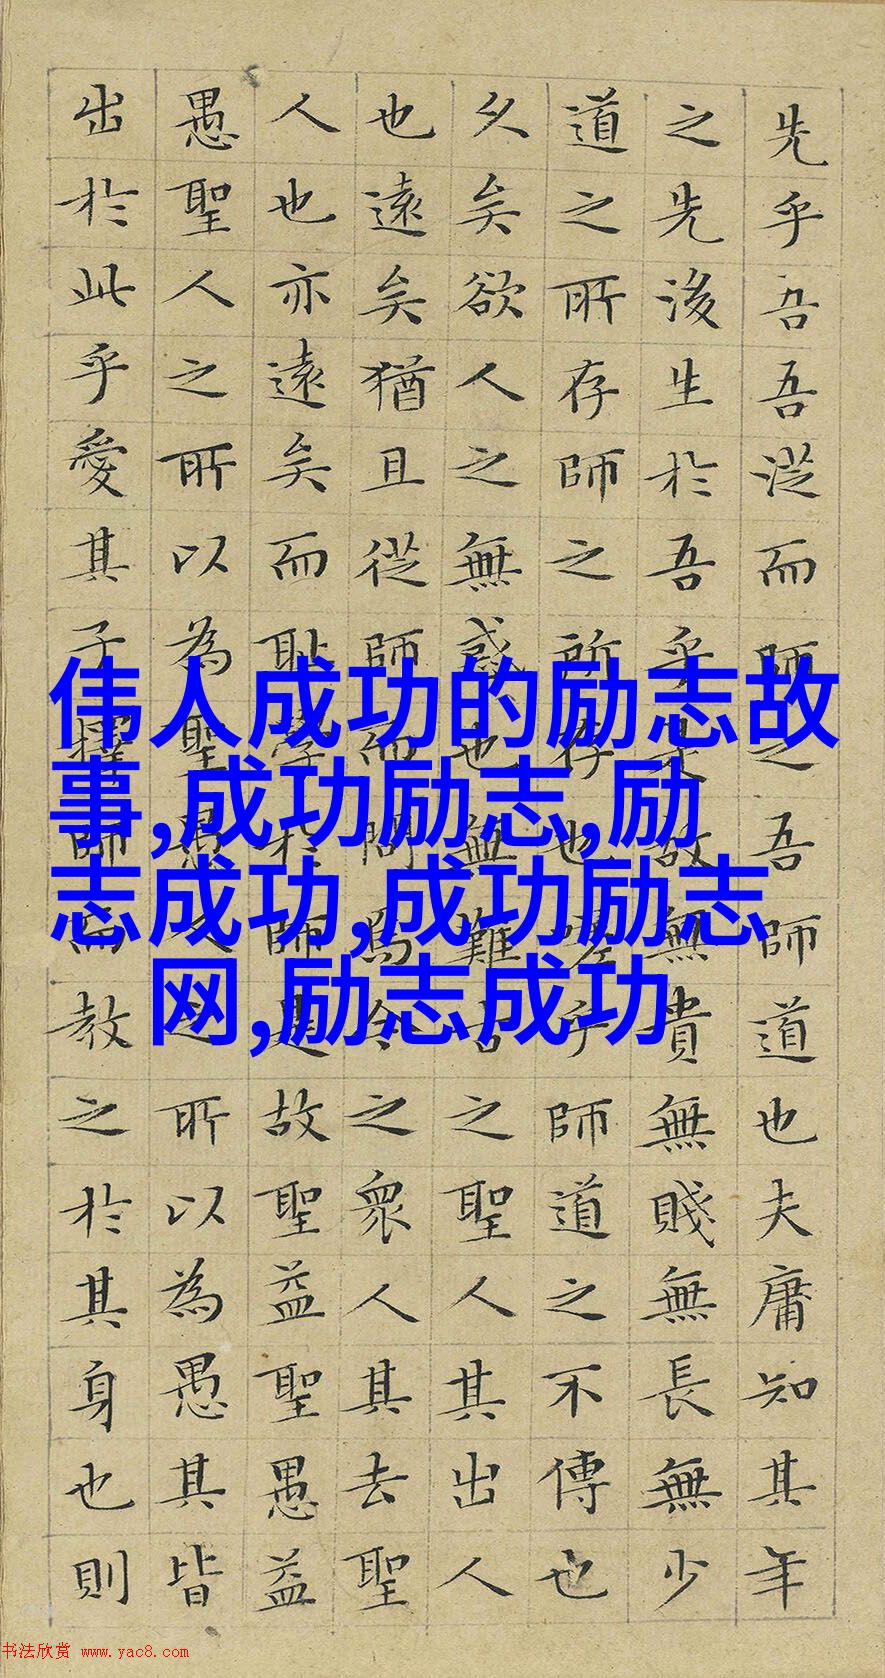 先乎吾吾從而師之吾師道也夫庸知其年
之先後生於吾乎是故無貴無賤無長無少
道之所存師之所存也嗟乎師道之不傳也
久矣欲人之無惑也無難古之聖人其出人
也遠矣猶且從師而問焉今之衆人其去聖
人也亦遠矣而耻學於師是故聖益聖愚益
愚聖人之所以為聖愚人之所以為愚其皆
出於此乎愛其子擇師而教之於其身也則
伟人成功的励志故
事,成功励志,励
志成功,成功励志
网,励志成功
书法欣赏 www.yac8.com